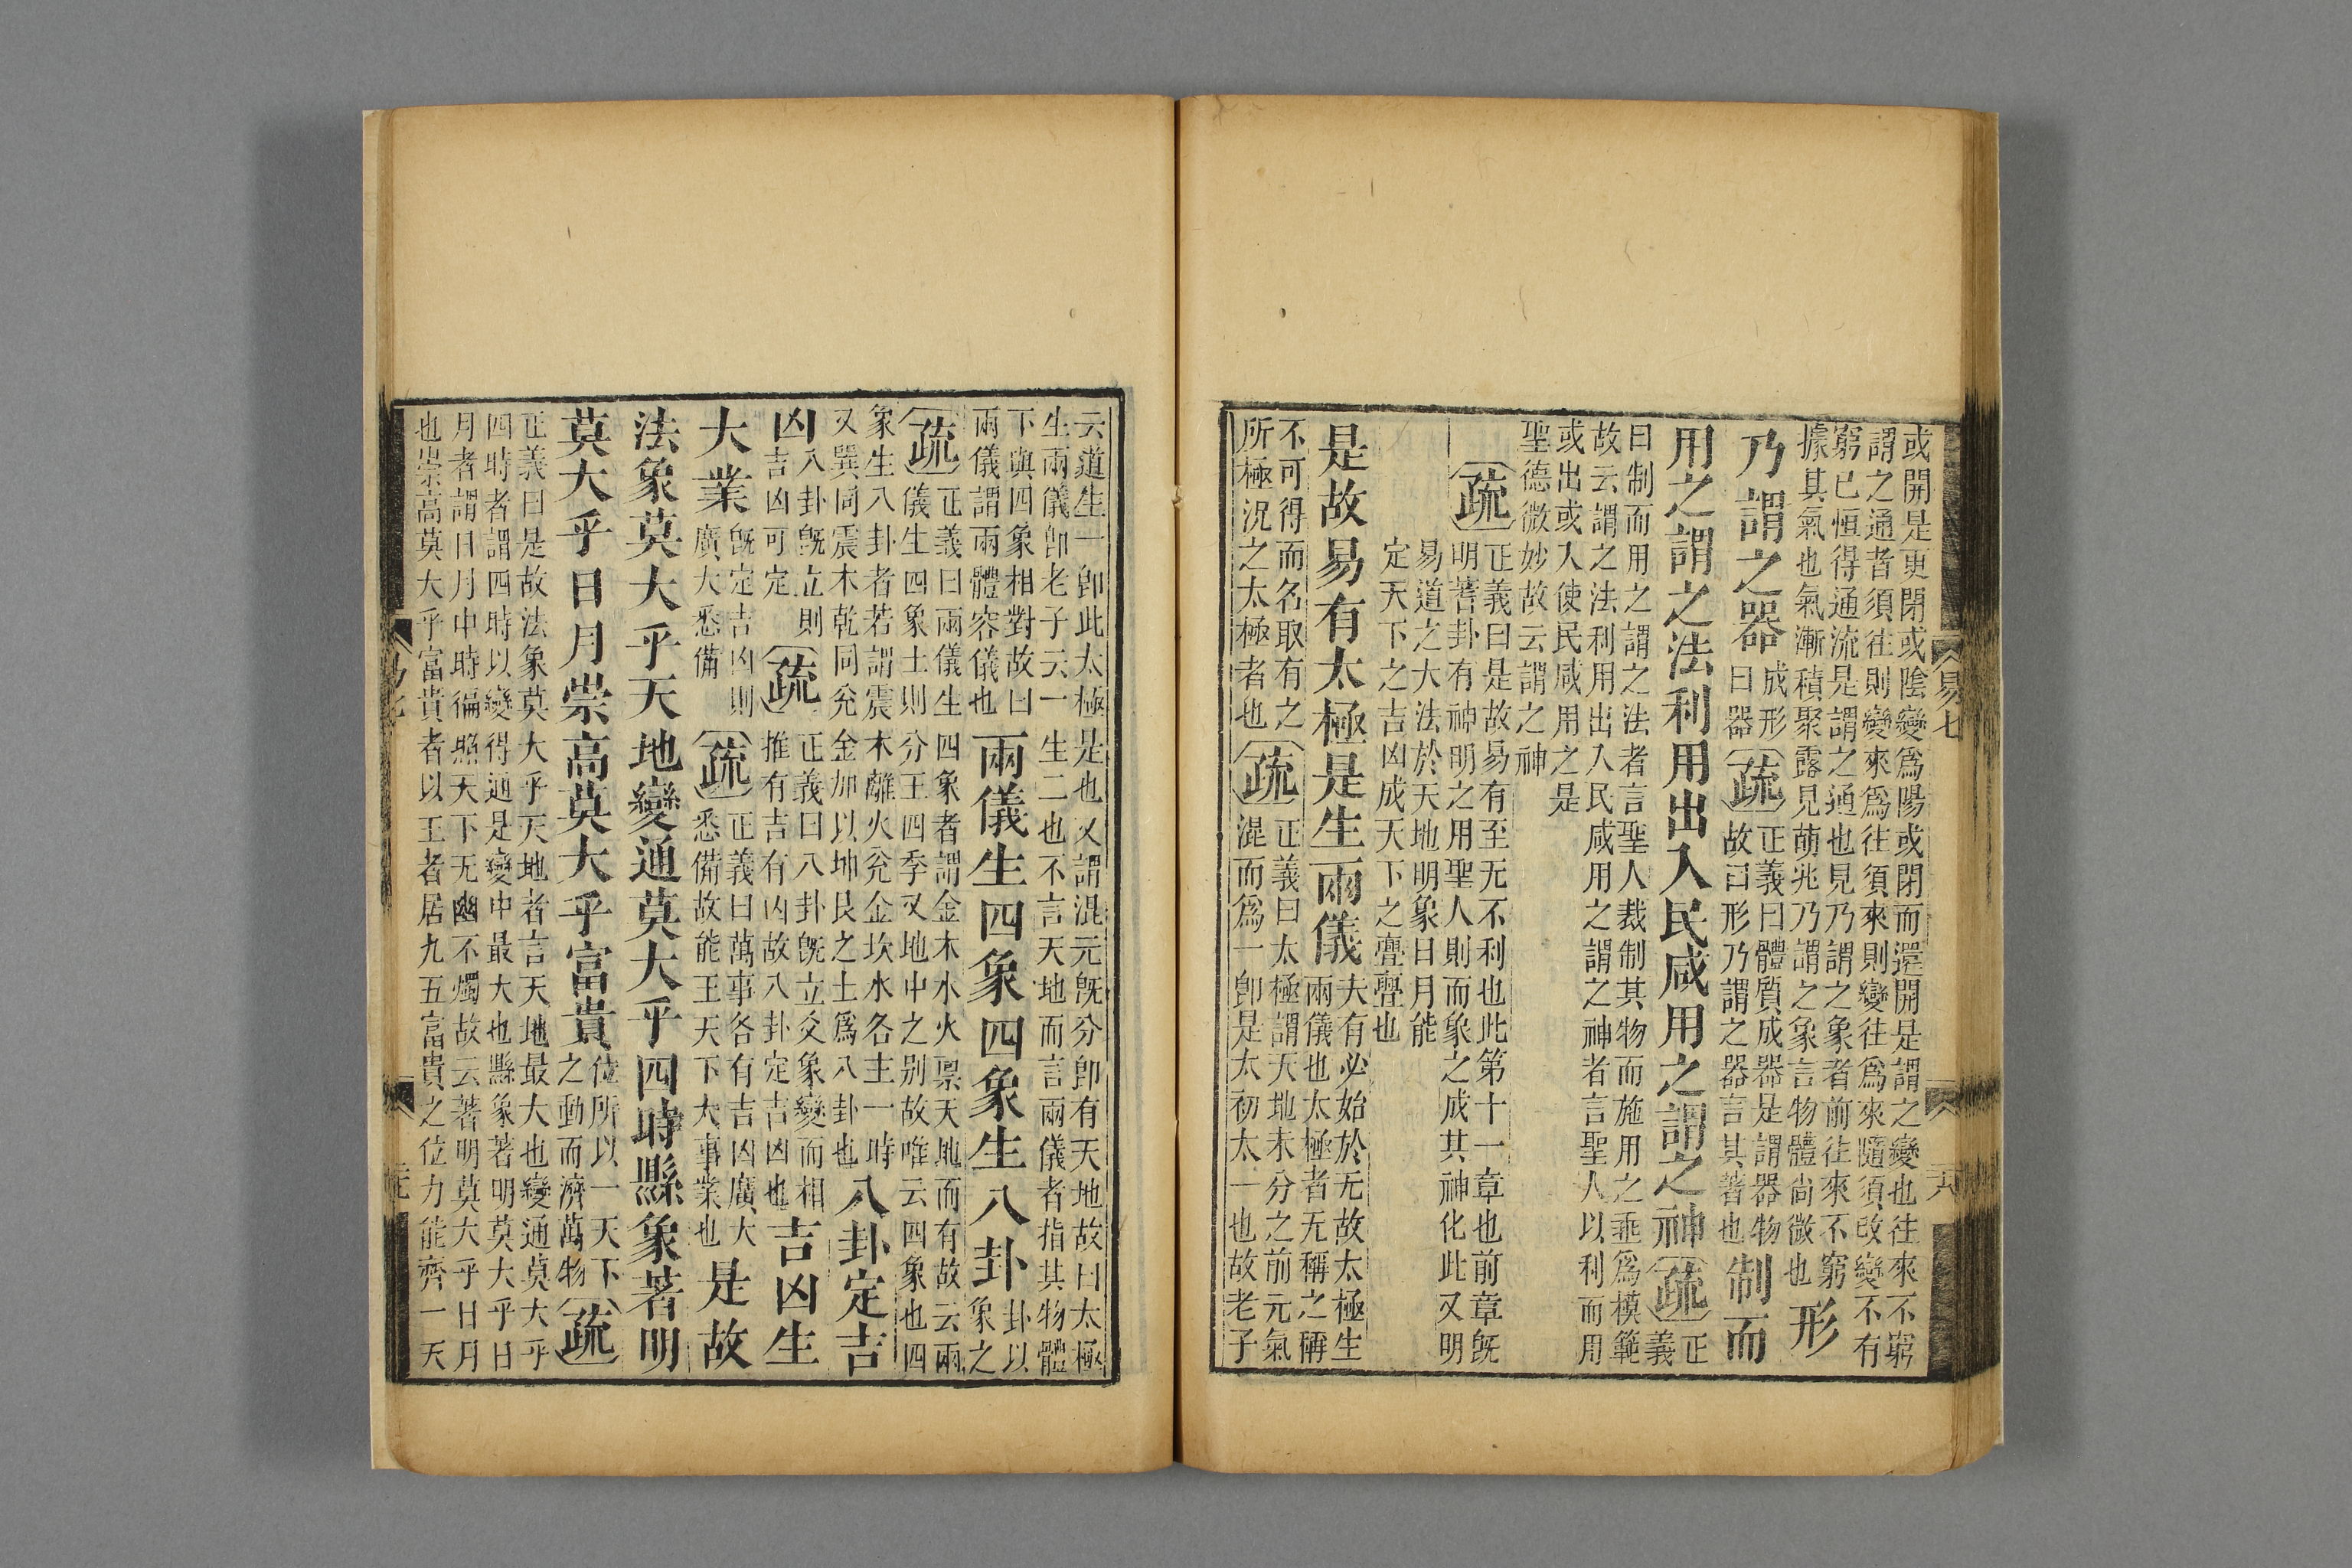 或開是更閉或陰變爲陽或閉而還開是謂之變也往來不窮
謂之通者須往則變來爲往須來則變往爲來隨須改變不有
窮已恒得通流是謂之通也見乃謂之象者前往來不窮
據其氣也氣漸積聚露見萌兆乃謂之象言物體尙微也
形
乃謂之器
成形
曰器
疏
正義曰體質成器是謂器物
故曰形乃謂之器言其著也
制而
用之謂之法利用出入民咸用之謂之神
疏
正
義
曰制而用之謂之法者言聖人裁制其物而施用之垂爲模範
故云謂之法利用出入民咸用之謂之神者言聖人以利而用
或出或入使民咸用之是
聖德微妙故云謂之神
疏
正義曰是故易有至无不利也此第十一章也前章旣
明蓍卦有神明之用聖人則而象之成其神化此又明
易道之大法於天地明象日月能
定天下之吉凶成天下之亹亹也
是故易有太極是生兩儀
夫有必始於无故太極生
兩儀也太極者无稱之稱
不可得而名取有之
所極況之太極者也
疏
正義曰太極謂天地未分之前元氣
混而爲一卽是太初太一也故老子
云道生一卽此太極是也又謂混元旣分卽有天地故曰太極
生兩儀卽老子云一生二也不言天地而言兩儀者指其物體
下與四象相對故曰
兩儀謂兩體容儀也
兩儀生四象四象生八卦
卦以
象之
疏
正義曰兩儀生四象者謂金木水火稟天地而有故云兩
儀生四象土則分王四季又地中之别故唯云四象也四
象生八卦者若謂震木離火兌金坎水各主一時
又巽同震木乾同兌金加以坤艮之土爲八卦也
八卦定吉
凶
八卦旣立則
吉凶可定
疏
正義曰八卦旣立爻象變而相
推有吉有凶故八卦定吉凶也
吉凶生
大業
旣定吉凶則
廣大悉備
疏
正義曰萬事各有吉凶廣大
悉備故能王天下大事業也
是故
法象莫大乎天地變通莫大乎四時縣象著明
莫大乎日月崇高莫大乎富貴
位所以一天下
之動而濟萬物
疏
正義曰是故法象莫大乎天地者言天地最大也變通莫大乎
四時者謂四時以變得通是變中最大也縣象著明莫大乎日
月者謂日月中時徧照天下无幽不燭故云著明莫大乎日月
也崇高莫大乎富貴者以王者居九五富貴之位力能齊一天